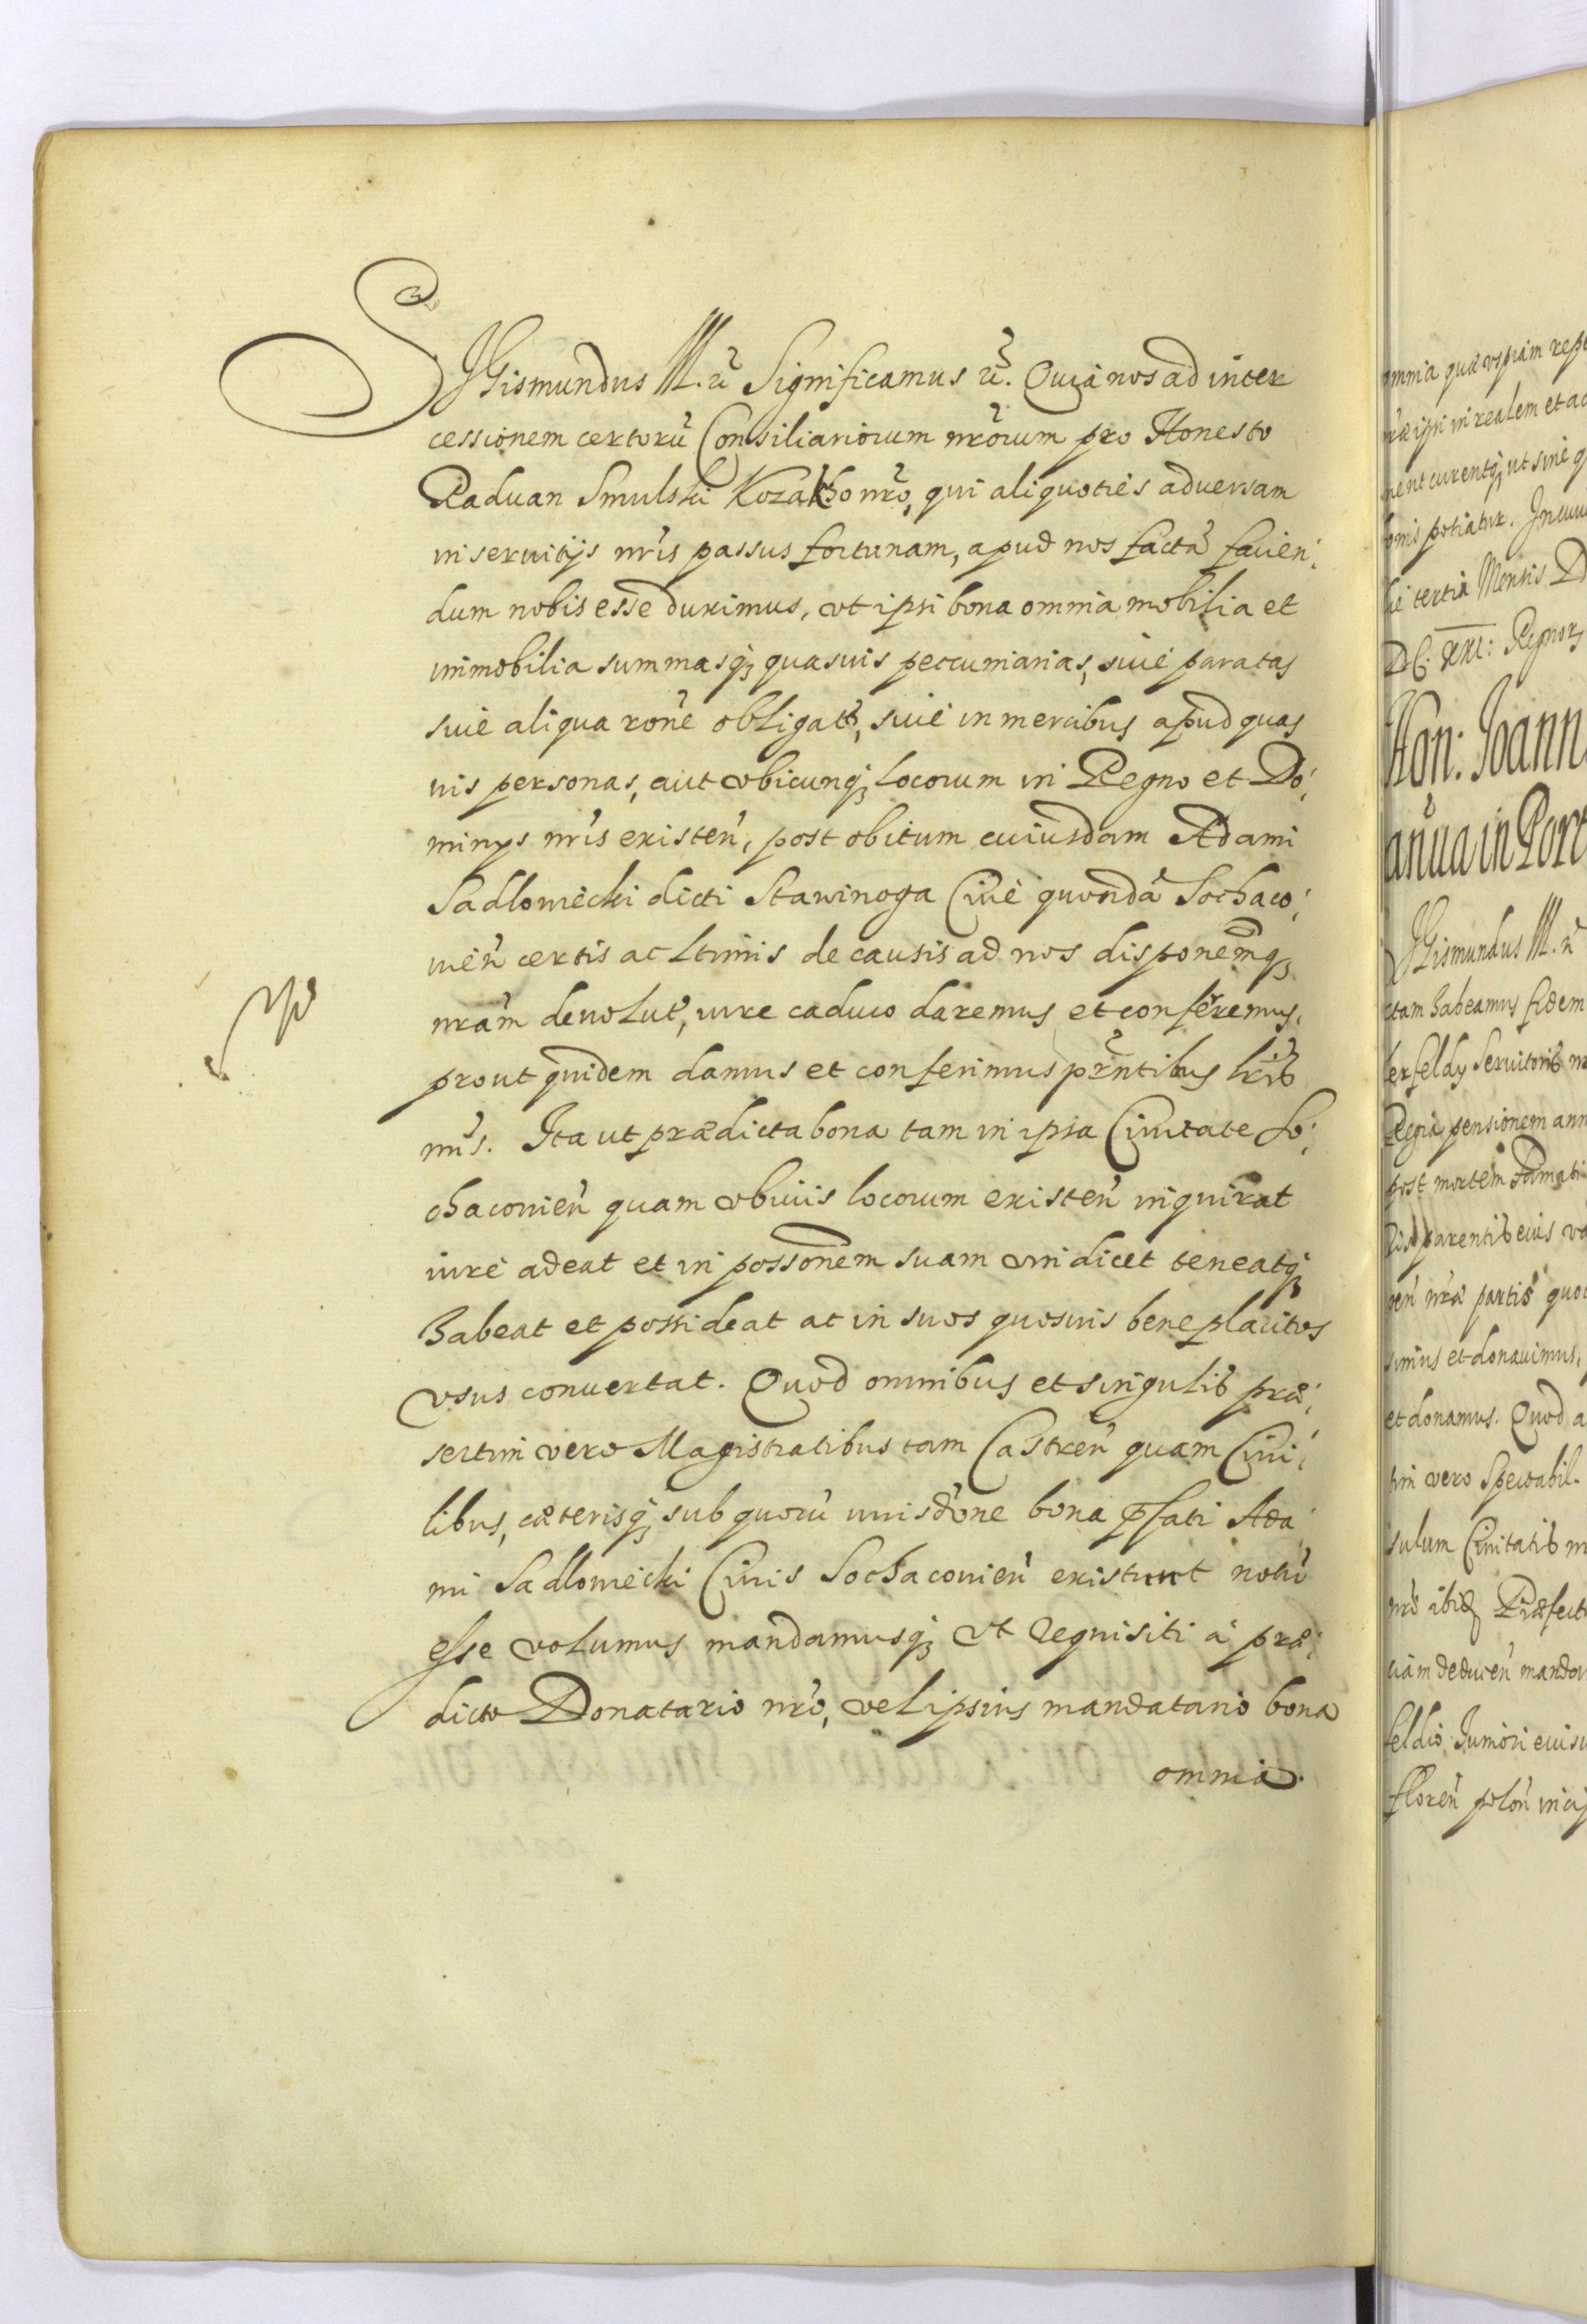 SIGismundus III. etc̃ Significamus etc̃. Quia nos ad inter
cessionem certorũ Consiliariorum nr̃orum pro Honesto
Raduan Smulski Kozakho nr̃o, qui aliquoties aduersam
in seruitijs nr̃is passus fortunam, apud nos factã facien:
dum nobis esse duximus, vt ipsi bona omnia mobilia et
immobilia summasq; quasuis peccuniarias, siue paratas
siue aliqua rõne obligatas, siue in mercibus apud quas
uis personas, aut vbicunq; locorum in Regno et Do:
minijs nr̃is existeñ, post obitum cuiusdam Adami
Sadlowiecki dicti Stawinoga Ciue quondã Sochaco:
uieñ certis ac ltimis de causis ad nos disponẽmq;
nrãm deuolut, iure caduco daremus et conferemus,
prout quidem damus et conferimus pñtibus lr̃is
nr̃is. Ita ut prædicta bona tam in ipsa Ciuitate So:
chacouieñ quam vbiuis locorum existeñ inquirat
iure adeat et in possonẽm suam vindicet teneatq;
habeat et possideat ac in suos quosuis beneplacitos
vsus conuertat. Quod omnibus et singulis præ:
sertim vero Magistratibus tam Castreñ quam Ciui:
libus, cæterisq; sub quorũ iurisdõne bona pfati Ada
mi Sadlowiecki Ciuis Sochacouieñ existunt notũ
esse volumus mandamusq; vt requisiti à præ:
dicto Donatario nr̃o, vel ipsius mandatario bona
omnia
omnia quæ vspiam
ipsi in realem et
curentq; ut sine
potiatur.
tertia Mensis
DC. XXI: Regnor;
Hon: Joann
añua in Port
SIGismundus III. etc̃
habeamus fidem
Seruitoris
Regia pensionem ann
post mortem
parentis eius
nr̃a partis
et donauimus,
et donamus. Quod a
vero Spectabil.
Ciuitatis
nr̃o ibid Præfect
deduceñ mandou
feldio Iuniori
floreñ poloñ